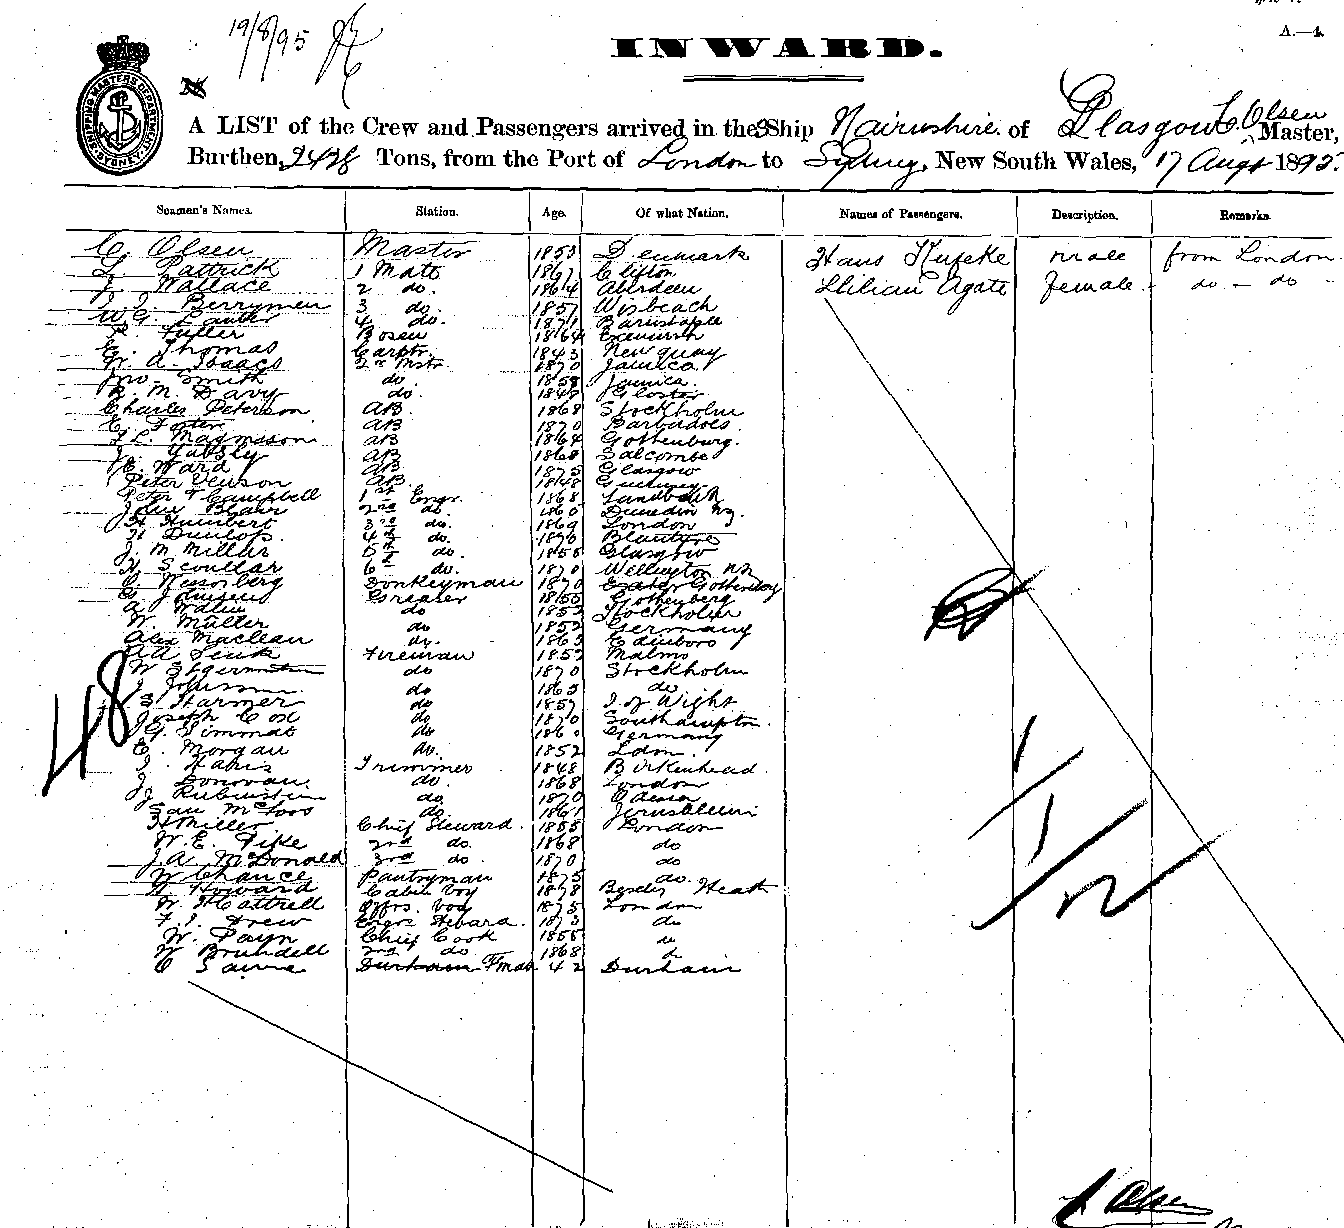 19/8/95
A.—4.
INWARD.
SHIPPING MASTERS DEPARTMENT SYDNEY
A LIST of the Crew and Passengers arrived in the SShip Nairnshire of Glasgow C. Olsen Master,
Burthen, 2428 Tons, from the Port of London to Sydney, New South Wales, 17 Augst 1895.
Seamen's Names. Station. Age. Of what Nation. Names of Passengers. Description. Remarks.
C. Olsen Master 1853 Denmark Hans Kufeke male from London
L Pattrick 1 Mate 1867 Clifton
J. Wallace 2 do. 1864 Aberdeen Lilian Agate female - do - do -
Berrymen 3 do. 1857 Wisbeach
W G. 4 do. 1871 Barnstaple
Fuller Bosen 1864
E. Thomas Carptr. 1843 Newquay
W. A. Isaacs 2 Mstr. 1870 Jamica
Jno. Smith do 1858 Jamica.
R. M. Davy do. 1848 Gloster
Charles Peterson AB. 1868 Stockholm
E. Foster AB 1870 Barbadoes
J L. Magnusson AB 1864 Gothenburg.
J. AB 1868 Salcombe
E. Ward AB 1875 Glasgow
Peter AB. 1848 Guernsey
Peter T Campbell 1st Engr. 1868
John Blair 2nd do. 1865 Dunedin NZ.
H. Humbert 3rd do. 1869 London
H Dunlop. 4th do. 1870 Blantyre
J. M Millar 5th do. 1855 Glasgow
H Scoullar 6th do. 1870 Wellington NZ
O. Donkeyman 1870 Gothenburg
G. Greaser 1855 Gothenberg
A. do 1852 Stockholm
W. Muller do 1852 Germany
Alex Maclean do. 1863 Edinboro
Fireman 1852 Malmo
W do 1870 Stockholm
J Johnson do 1865 do
S Starmer do 1857 I. of Wight
Joseph Cox do 1870 Southampton
G. Timmat do 186 Germany
E. Morgan do. 1852 Ldon.
J. Trimmer 1848 Birkenhead.
J. Donovan do. 1868 London
J. Rubinstein do. 1870 Odessa
Sam do 1861 Jerusalem
H Miller Chief Steward. 1855 London
W. E. Pike 2nd do. 1868 do
J. A. McDonald 3rd do. 1870 do
W Chance Pantryman 1875 do.
Howard Cabin boy 1878 Heath
W. Hattrell Offrs. boy 1875 London
F. J. Drew Engrs 1873 do
W. Payn Chief Cook 1855 do
W Brundell 2nd do 1868 do
O Fman 42 Durham
48
1
1
2
Olsen